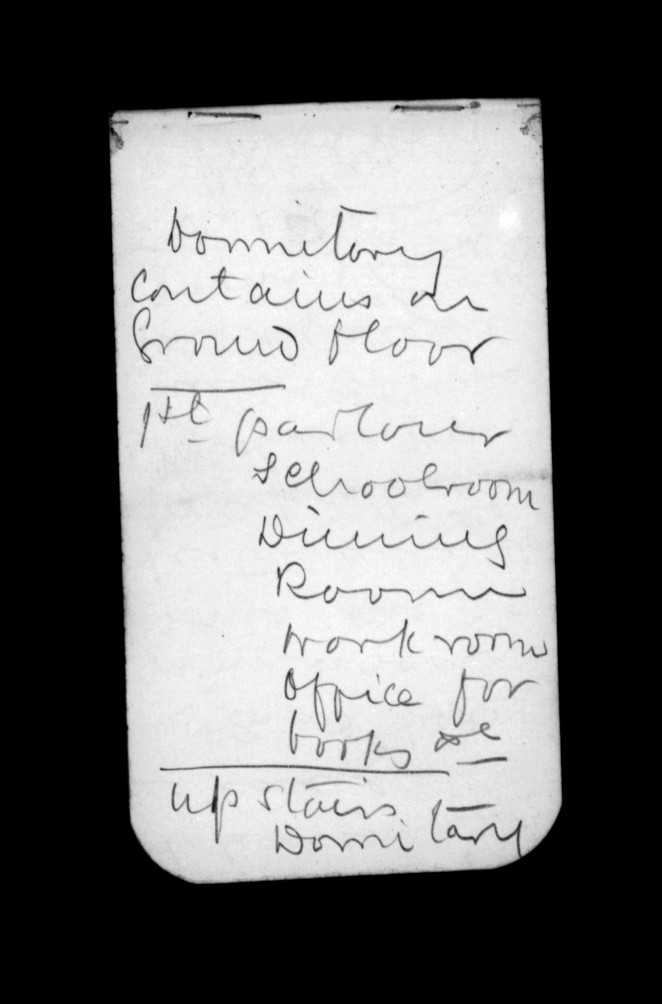 Dormitory
contains on
Ground floor
1st parlour
Schoolroom
Dining
Room
workroom
Office for
books &c
up stairs
Dormitary